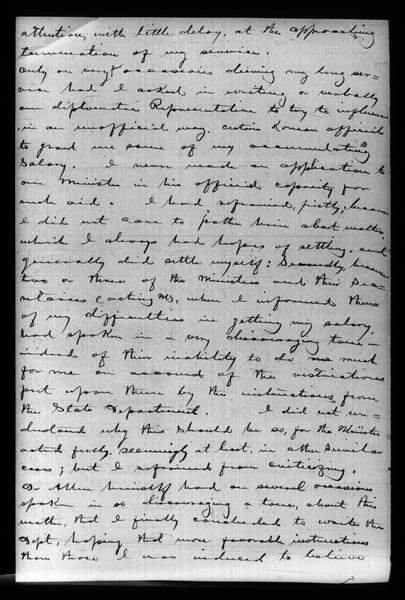 attention, with little delay, at the approaching
termination of my service.
Only on very few occasions during my long ser-
vice had I asked in writing or verbally
our diplomatic Representative to try to influence
in an unofficial way, certain Korean officials
to grant me some of my accumulating
Salary. I never made an application to
our Minister in his official capacity for
such aid. I had refrained, firstly; because
I did not care to bother him about matters
which I always had hopes of settling, and
generally did settle myself: Secondly, because
two or three of the Ministers and their Sec-
retaries (acting M), when I informed them
of my difficulties in getting my salary,
had spoken in a very discouraging tone—
instead of their inability to do me much
for me on account of the restrictions
put upon them by the instructions from
the State Department. I did not un-
derstand why this should be so, for the Minister
acted freely, seemingly at least, in other similar
cases; but I refrained from criticizing.
Dr Allen himself had on several occasions
spoken in so discouraging a tone, about this
matter, that I finally concluded to write the
Dept, hoping that more favorable instructions
than those I was induced to believe